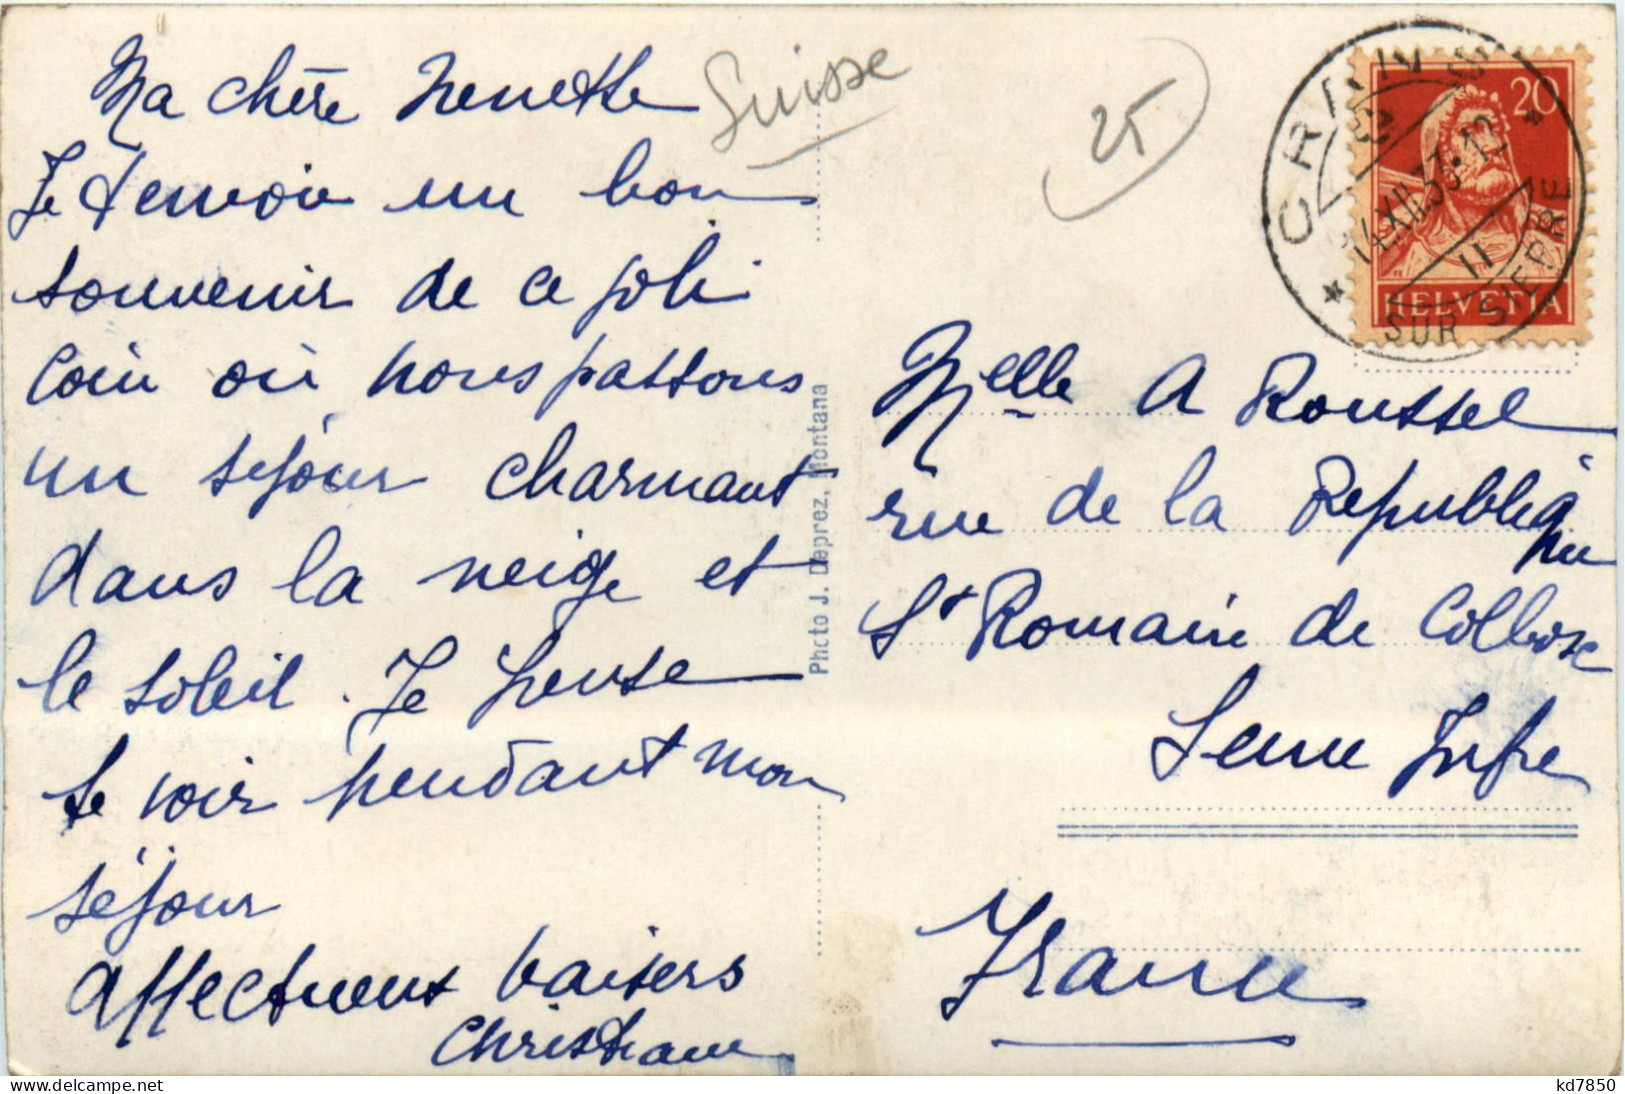 Ma chère Nenette
Je t'envoie un bon
souvenir de ce joli
coin où nous passons
un séjour charmant
dans la neige et
le soleil. Je pense
te voir pendant mon
séjour
affectueux baisers
Christiane
Suisse
25
Photo J. Deprez, Montana
CRANS
SUR SIERRE
14.XII.33.12
11
20
HELVETIA
Melle A Roussel
rue de la République
St Romain de Colbosc
Seine Infre
France
delcampe.net
kd7850